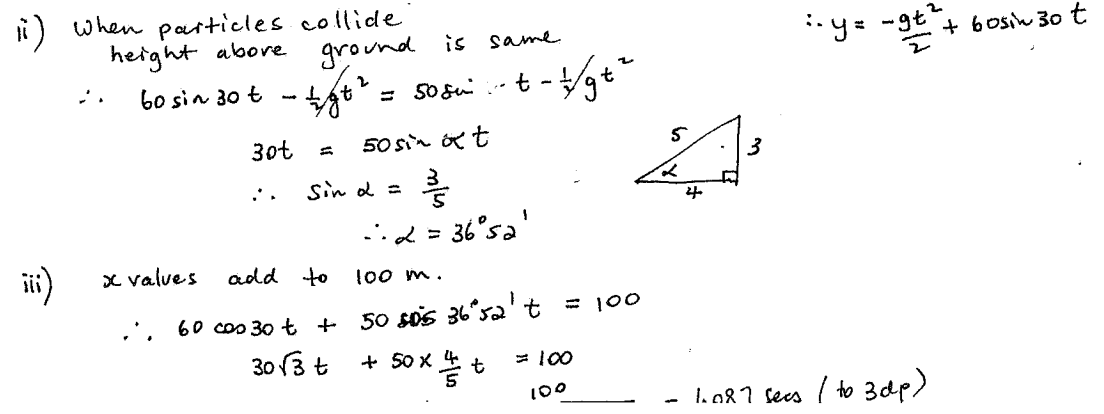 ii) When particles collide
height above ground is same
∴ y = -gt²/2 + 60sin30 t
∴ 60 sin 30 t - ½gt² = 50 sin t - ½gt²
30t = 50 sin α t
∴ sin α = 3/5
5 3
α
4
∴ α = 36°52'
iii) x values add to 100 m.
∴ 60 cos 30 t + 50 cos 36°52' t = 100
30√3 t + 50 × 4/5 t = 100
100 = 1.087 secs (to 3dp)